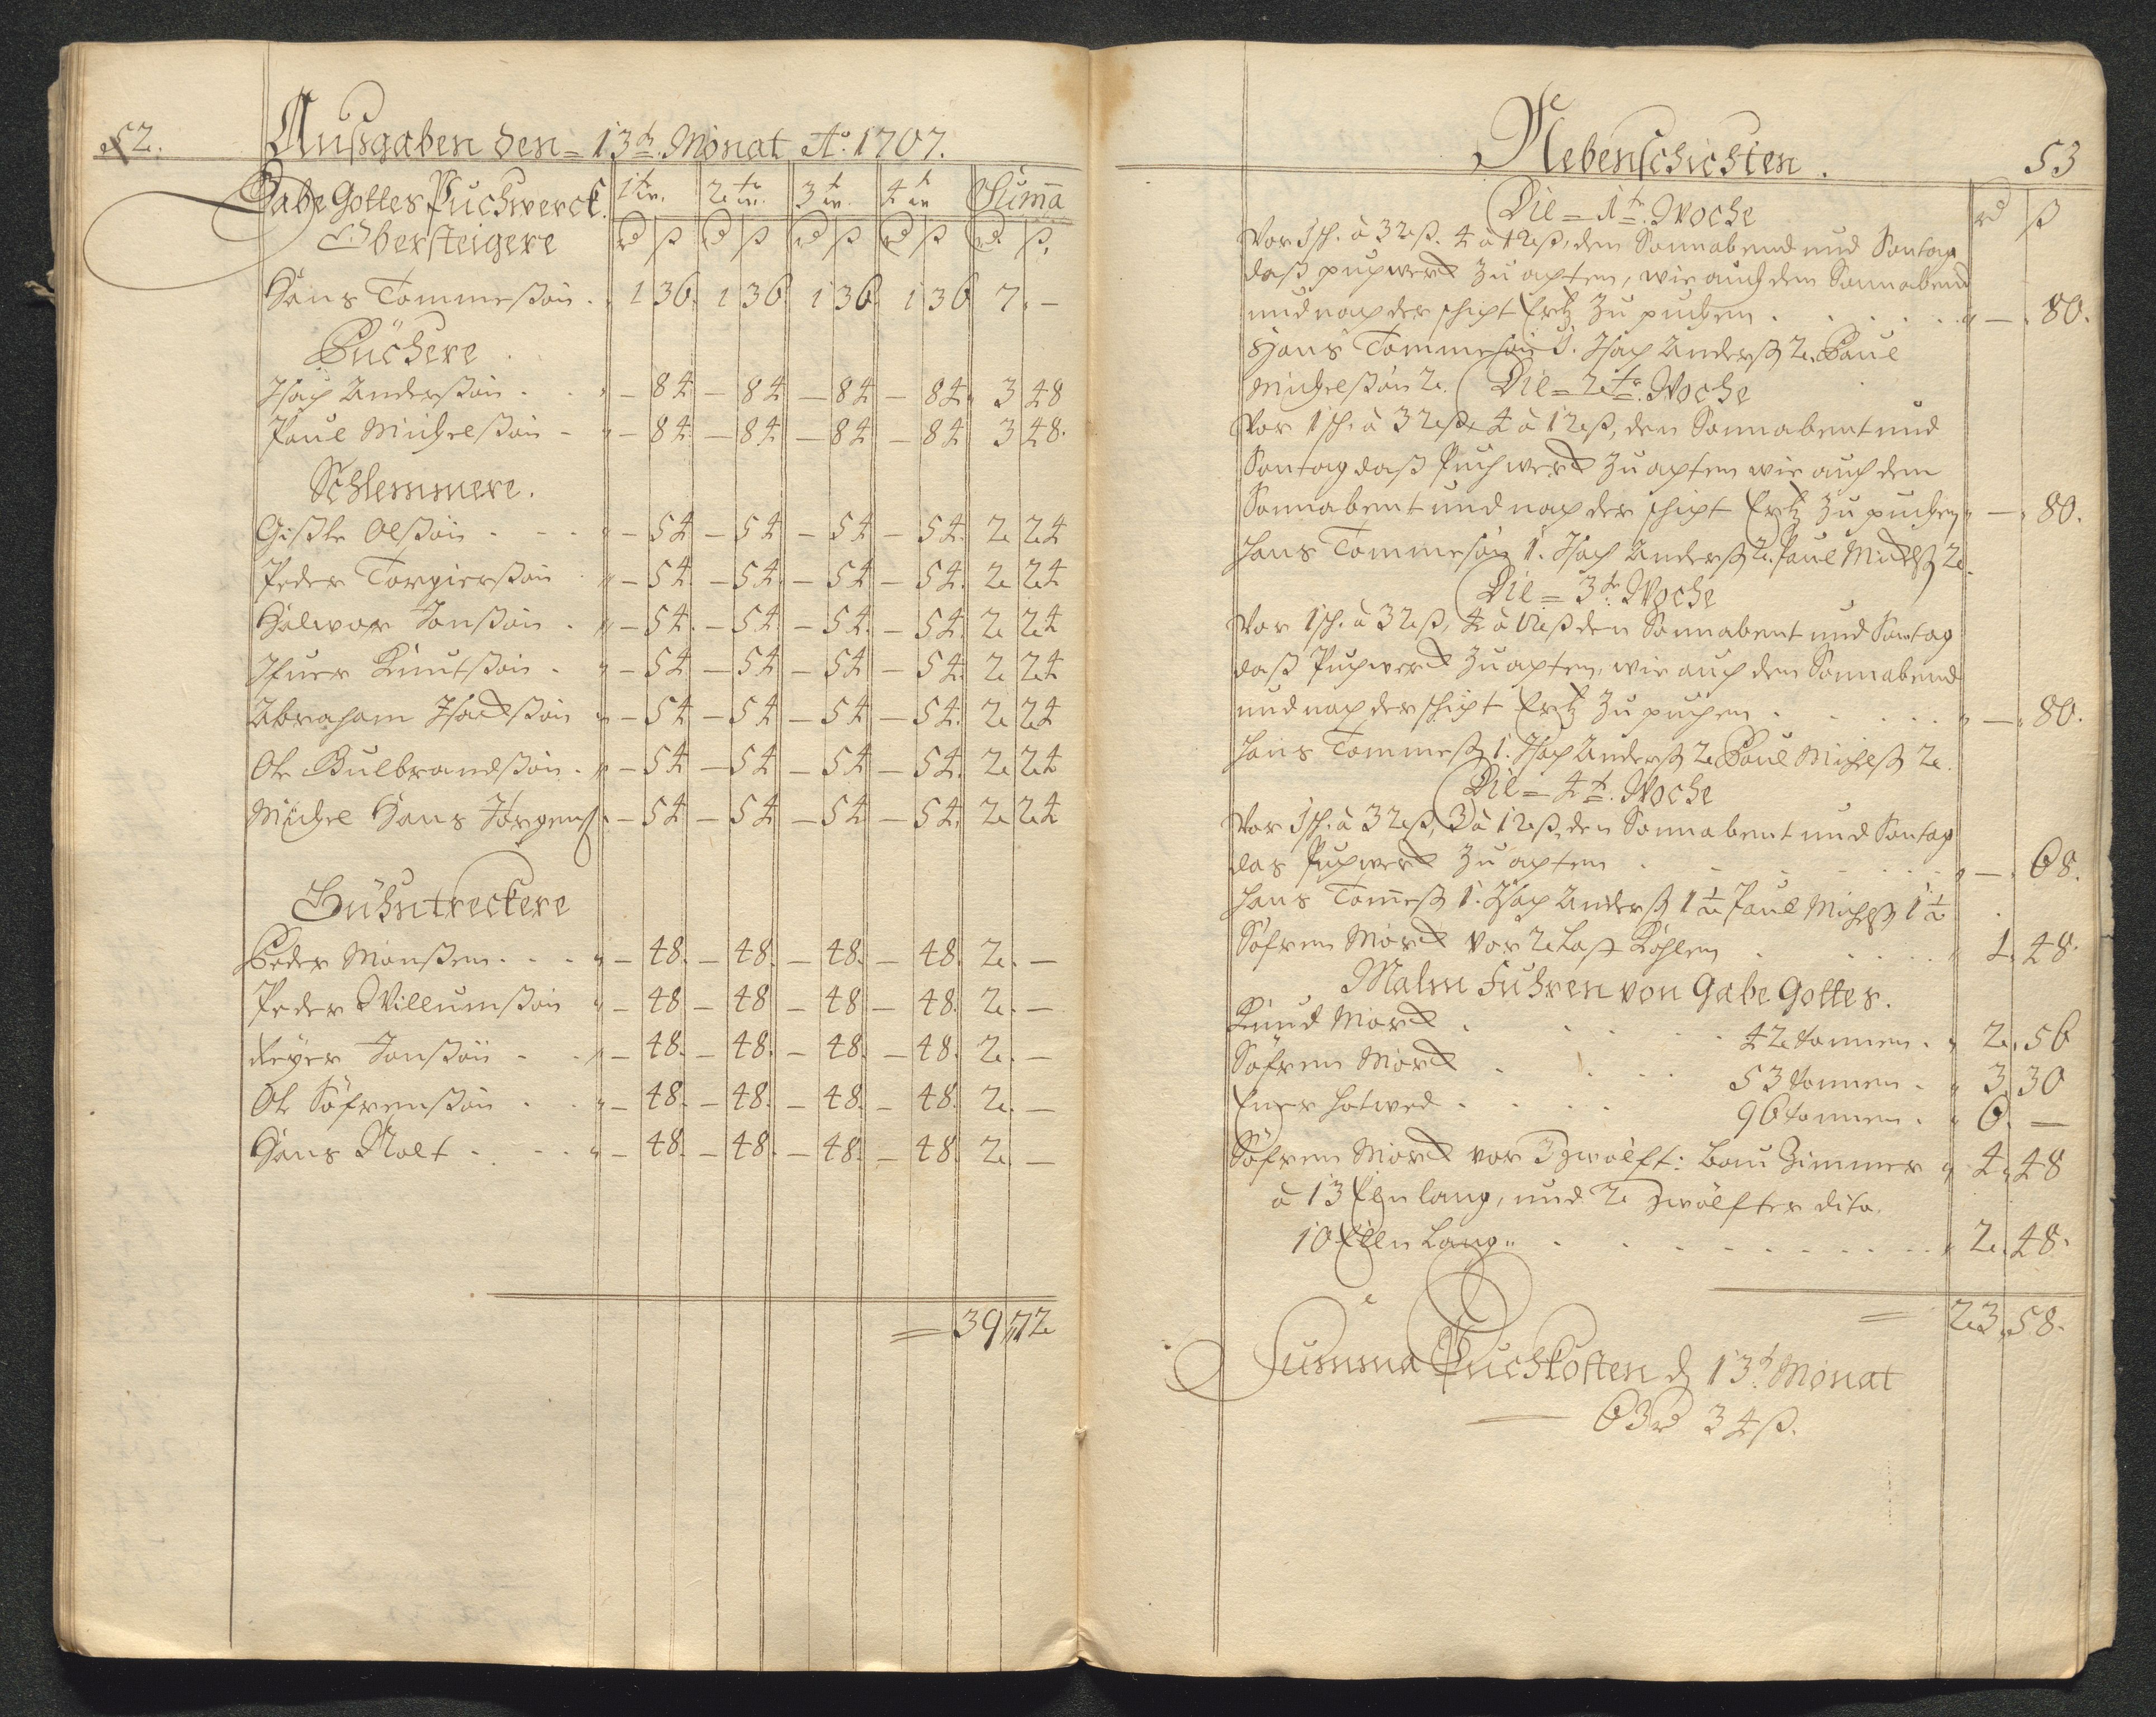 52.
Außgaben den = 13ten. Monat Ao. 1707.
Gabe Gottes Puchwerck. 1t w. 2t w. 3t w. 4t w Summa
Obersteigere rd ß rd ß rd ß rd ß rd ß.
Hans Tommeßøn . 1 36. 1 36. 1 36. 1 36 7. –
Püchere .
Isach Anderßøn . . . – 84 – 84 – 84 – 84. 3 48
Paul Michelßøn – – 84 – 84 – 84 – 84 3 48.
Schlemmere.
Gißle Olßøn . . . – 54 – 54 – 54 – 54. 2 24
Peder Torgierßøn . – 54. – 54. – 54 – 54. 2 24
Halvor Jonßøn . – 54. – 54. – 54. – 54. 2 24
Ifuer Knutßøn . – 54 – 54. – 54 – 54. 2 24
Abraham Isackßøn – 54 – 54 – 54 – 54. 2 24
Ole Gulbrandßøn . – 54 – 54 – 54 – 54. 2 24
Michel Hans Jørgenß. – 54 – 54 – 54 – 54. 2 24
Buhntreckere
Peder Monßen . . . – 48. – 48. – 48. – 48. 2. –
Peder Willumßøn – 48 – 48 – 48 – 48. 2. –
Reyer Jonßøn . . – 48. – 48. – 48. – 48. 2. –
Ole Søfrenßøn . . – 48. – 48. – 48. – 48. 2. –
Hans Nolt . . . – 48. – 48. – 48. – 48. 2. –
= 39 72
Nebenschichten . 53
Die = 1te. Woche rd ß
Vor 1 sch. à 32 ß. 4 à 12 ß, den Sonnabend und Sontag
daß puchwerck zu achten, wie auch den Sonnabend
und nach der schicht Ertz zu puchen . . . . . – . 80.
Hans Tommeßøn 1. Isach Anderß 2. Paul
Michelßøn 2. Die = 2te. Woche
Vor 1 sch. à 32 ß, 4 à 12 ß, den Sonnabent und
Sontag daß Puchwerck zu achten wie auch den
Sonnabent und nach der schicht Ertz zu puchen – . 80.
Hans Tommesøn 1. Isach Anderß 2. Paul Michelß 2.
Die = 3te. Woche
Vor 1 sch. à 32 ß, 4 à 12 ß den Sonnabent und Sontag
daß Puchwerck zu achten, wie auch den Sonnabend
und nach der schicht Ertz zu puchen . . . . . – . 80.
Hans Tommeß 1. Isach Anderß 2 Paul Michelß 2.
Die = 4te. Woche
Vor 1 sch. à 32 ß, 3 à 12 ß, den Sonnabent und Sontag
das Puchwerck zu achten . . . . . . – . 68.
Hans Tomeß 1. Isach Anderß 1 1/2 Paul Michelß 1 1/2
Søfren Morck vor 2 Last Kohlen . . . . 1. 48.
Malm Fuhren von Gabe Gottes.
Knud Morck . . . . 42 tonnen . 2. 56
Søfren Morck . . . . 53 tonnen . 3. 30
Ener Hotved . . . . 96 tonnen . 6. –
Søfren Morck vor 3 zwölft: Bau Zimmer 4. 48
à 13 Ellen lang, und 2 zwölfter dito.
10 Ellen Lang . . . . . . . . 2. 48.
= 23. 58.
Summa Puchkosten d 13t. Monat
— 63 rd 34 ß.